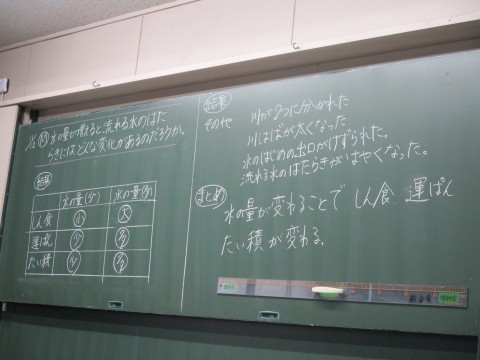 水の量が増えると流れる水のはた
らきにはどんな変化があるのだろうか。
結果
水の量(少) 水の量(多)
しん食 小 大
運ぱん 少 多
たい積 少 多
結果
その他
川が2つに分かれた
川はばが太くなった
水のはじめの出口がけずられた。
流れる水のはたらきがはやくなった。
まとめ
水の量が変わることで しん食 運ぱん
たい積が変わる。